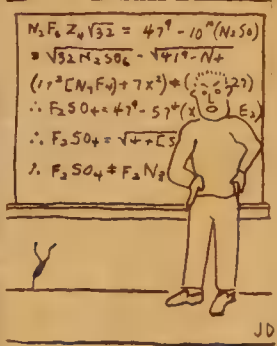 N₂F₆ Z₄√32 = 47⁹ - 10¹⁰(N₂SO)
= √32 N₂SO₆ - √41⁹ - N+
(17³[N₇F₄) + 7x²) + ( 27)
∴ F₂SO₄ = 47⁹ - 57⁴(X E₂)
∴ F₂SO₄ = √++[S
∴ F₂SO₄ ≠ F₂N₂
JD